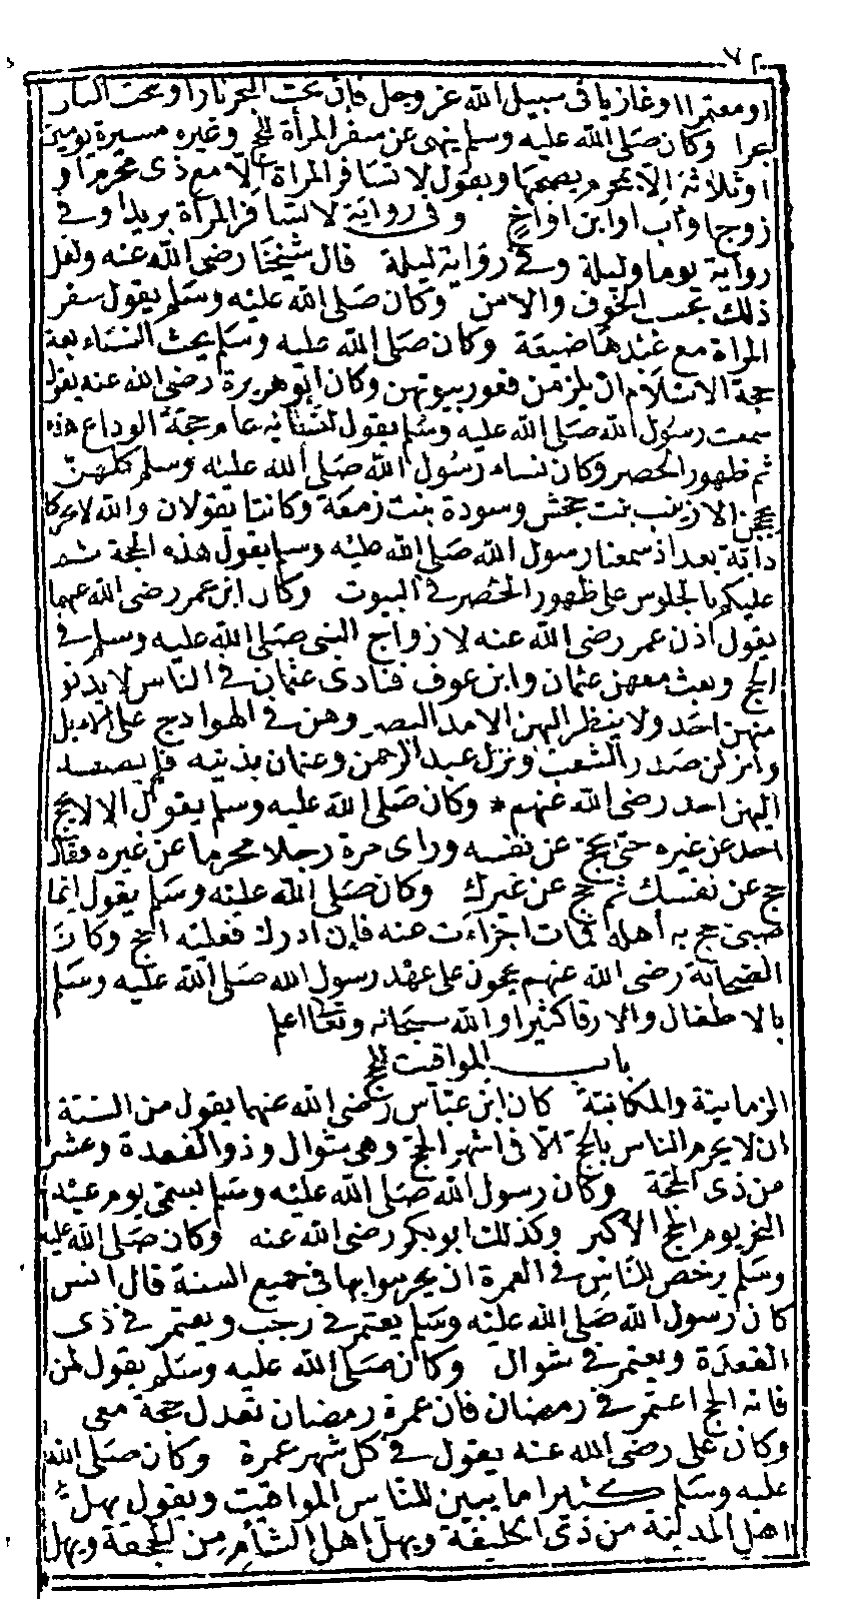 ٧٢
او معتمرا او غازيا فى سبيل الله عز وجل فإن تحت البحر نارا وتحت النار
بحرا وكان صلى الله عليه وسلم ينهى عن سفر المرأة للحج وغيره مسيرة يومين
او ثلاثة إلا بمحرم يصحبها ويقول لا تسافر المراة إلا مع ذى محرم او
زوجا واب او ابن او اخ وفى رواية لا تسافر المرأة بريدا وفى
رواية يوما وليلة وفى رواية ليلة قال شيخنا رضى الله عنه ولعل
ذلك بحسب الخوف والامن وكان صلى الله عليه وسلم يقول سفر
المراة مع عبدها ضيعة وكان صلى الله عليه وسلم يحث النساء بعد
حجة الاسلام ان يلزمن قعور بيوتهن وكان ابو هريرة رضى الله عنه يقول
سمعت رسول الله صلى الله عليه وسلم يقول لنسائه عام حجة الوداع هذه
ثم ظهور الحصر وكان نساء رسول الله صلى الله عليه وسلم كلهن
يحججن الا زينب بنت جحش وسودة بنت زمعة وكانتا يقولان والله لا تحركنا
دابة بعد اذ سمعنا رسول الله صلى الله عليه وسلم يقول هذه الحجة ثم
عليكم بالجلوس على ظهور الحصر فى البيوت وكان ابن عمر رضى الله عنهما
يقول اذن عمر رضى الله عنه لازواج النبى صلى الله عليه وسلم فى
الحج وبعث معهن عثمان وابن عوف فنادى عثمان فى الناس لا يدنو
منهن احد ولا ينظر اليهن الا مد البصر وهن فى الهوادج على الابل
وانزلن صدر الشعب ونزل عبد الرحمن وعثمان بذنبه فلم يصعد
اليهن احد رضى الله عنهم * وكان صلى الله عليه وسلم يقول الا لا يحج
احد عن غيره حتى يحج عن نفسه وراى مرة رجلا محرما عن غيره فقال
حج عن نفسك ثم حج عن غيرك وكان صلى الله عليه وسلم يقول ايما
صبى حج به أهله فمات اجزاءت عنه فإن ادرك فعليه الحج وكان
الصحابة رضى الله عنهم يحجون على عهد رسول الله صلى الله عليه وسلم
بالاطفال والارقا كثيرا والله سبحانه وتعالى اعلم
باب المواقيت للحج
الزمانية والمكانية كان ابن عباس رضى الله عنهما يقول من السنة
ان لا يحرم الناس بالحج الا فى اشهر الحج وهى شوال وذو القعدة وعشر
من ذى الحجة وكان رسول الله صلى الله عليه وسلم يسمى يوم عيد
النحر يوم الحج الاكبر وكذلك ابو بكر رضى الله عنه وكان صلى الله عليه
وسلم يرخص للناس فى العمرة ان يحرموا بها فى جميع السنة قال انس
كان رسول الله صلى الله عليه وسلم يعتمر فى رجب ويعتمر فى ذى
القعدة ويعتمر فى شوال وكان صلى الله عليه وسلم يقول لمن
فاته الحج اعتمر فى رمضان فان عمرة رمضان تعدل حجة معى
وكان على رضى الله عنه يقول فى كل شهر عمرة وكان صلى الله
عليه وسلم كثيرا ما يبين للناس المواقيت ويقول يهل
اهل المدينة من ذى الحليفة ويهل اهل الشأم من الجحفة ويهل